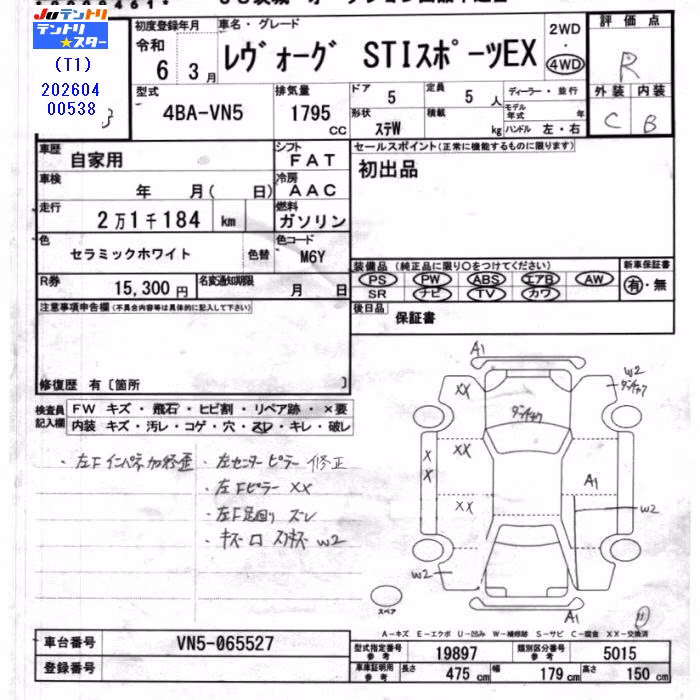 Juテントリ
テントリ★スター
(T1)
202604
00538
初度登録年月
令和
6年 3月
車名・グレード
レヴォーグ STIスポーツEX
2WD
・
4WD
評価点
R
型式
4BA-VN5
排気量
1795
cc
ドア
5
定員
5
人
形状
ステW
積載
kg
ディーラー・並行
モデル年式
年
ハンドル 左・右
外装
内装
C
B
車歴
自家用
シフト
FAT
車検
年 月( 日)
冷房
AAC
走行
2万1千184
km
燃料
ガソリン
色
セラミックホワイト
色替
色コード
M6Y
R券
15,300円
名変通知期限
月 日
セールスポイント(正常に機能するものに限ります)
初出品
装備品(純正品に限り○をつけてください)
PS PW ABS エアB AW
SR ナビ TV カワ
新車保証書
有・無
後日品
保証書
注意事項申告欄(不具合内容等は具体的に記入して下さい)
修復歴 有〔箇所 〕
検査員
記入欄
FW キズ・飛石・ヒビ割・リペア跡・×要
内装 キズ・汚レ・コゲ・穴・スレ・キレ・破レ
・左Fインパネ加修歪
・左センターピラー 修正
・左Fピラー XX
・左F足回り ズレ
・キズ凹 スリキズ W2
A1
XX
W2
XX
X
X
XX
A1
W2
W2
A1
スペア
11
A-キズ E-エクボ U-凹み W-補修跡 S-サビ C-腐食 XX-交換済
車台番号
VN5-065527
登録番号
型式指定番号
参考
19897
類別区分番号
参考
5015
車庫証明用
参考
長さ
475 cm
幅
179 cm
高さ
150 cm